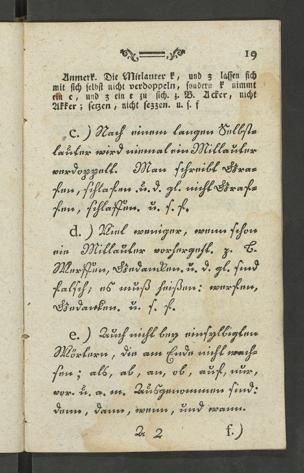 19
Anmerk. Die Mitlauter k, und z lassen sich
mit sich selbst nicht verdoppeln, sondern k nimmt
ein c, und z ein t zu sich. z. B. Acker, nicht
Akker; setzen, nicht sezzen. u. s. f
c.) Nach einem langen Selbst-
lauter wird niemal ein Mitlauter
verdoppelt. Man schreibt Gra-
fen, schlafen u. d. gl. nicht Graf-
fen, schlaffen. u. s. f.
d.) Viel weniger, wenn schon
ein Mitlauter vorhergeht. z. B.
Werffen, Gedancken u. d. gl. sind
falsch; es muß heißen: werfen,
Gedanken. u. s. f.
e.) Auch nicht bey einsylbigten
Wörtern, die am Ende nicht wach-
sen; als, ab, an, ob, auf, nur,
vor u. a. m. Ausgenommen sind:
denn, dann, wenn, und wann.
A 2 f.)